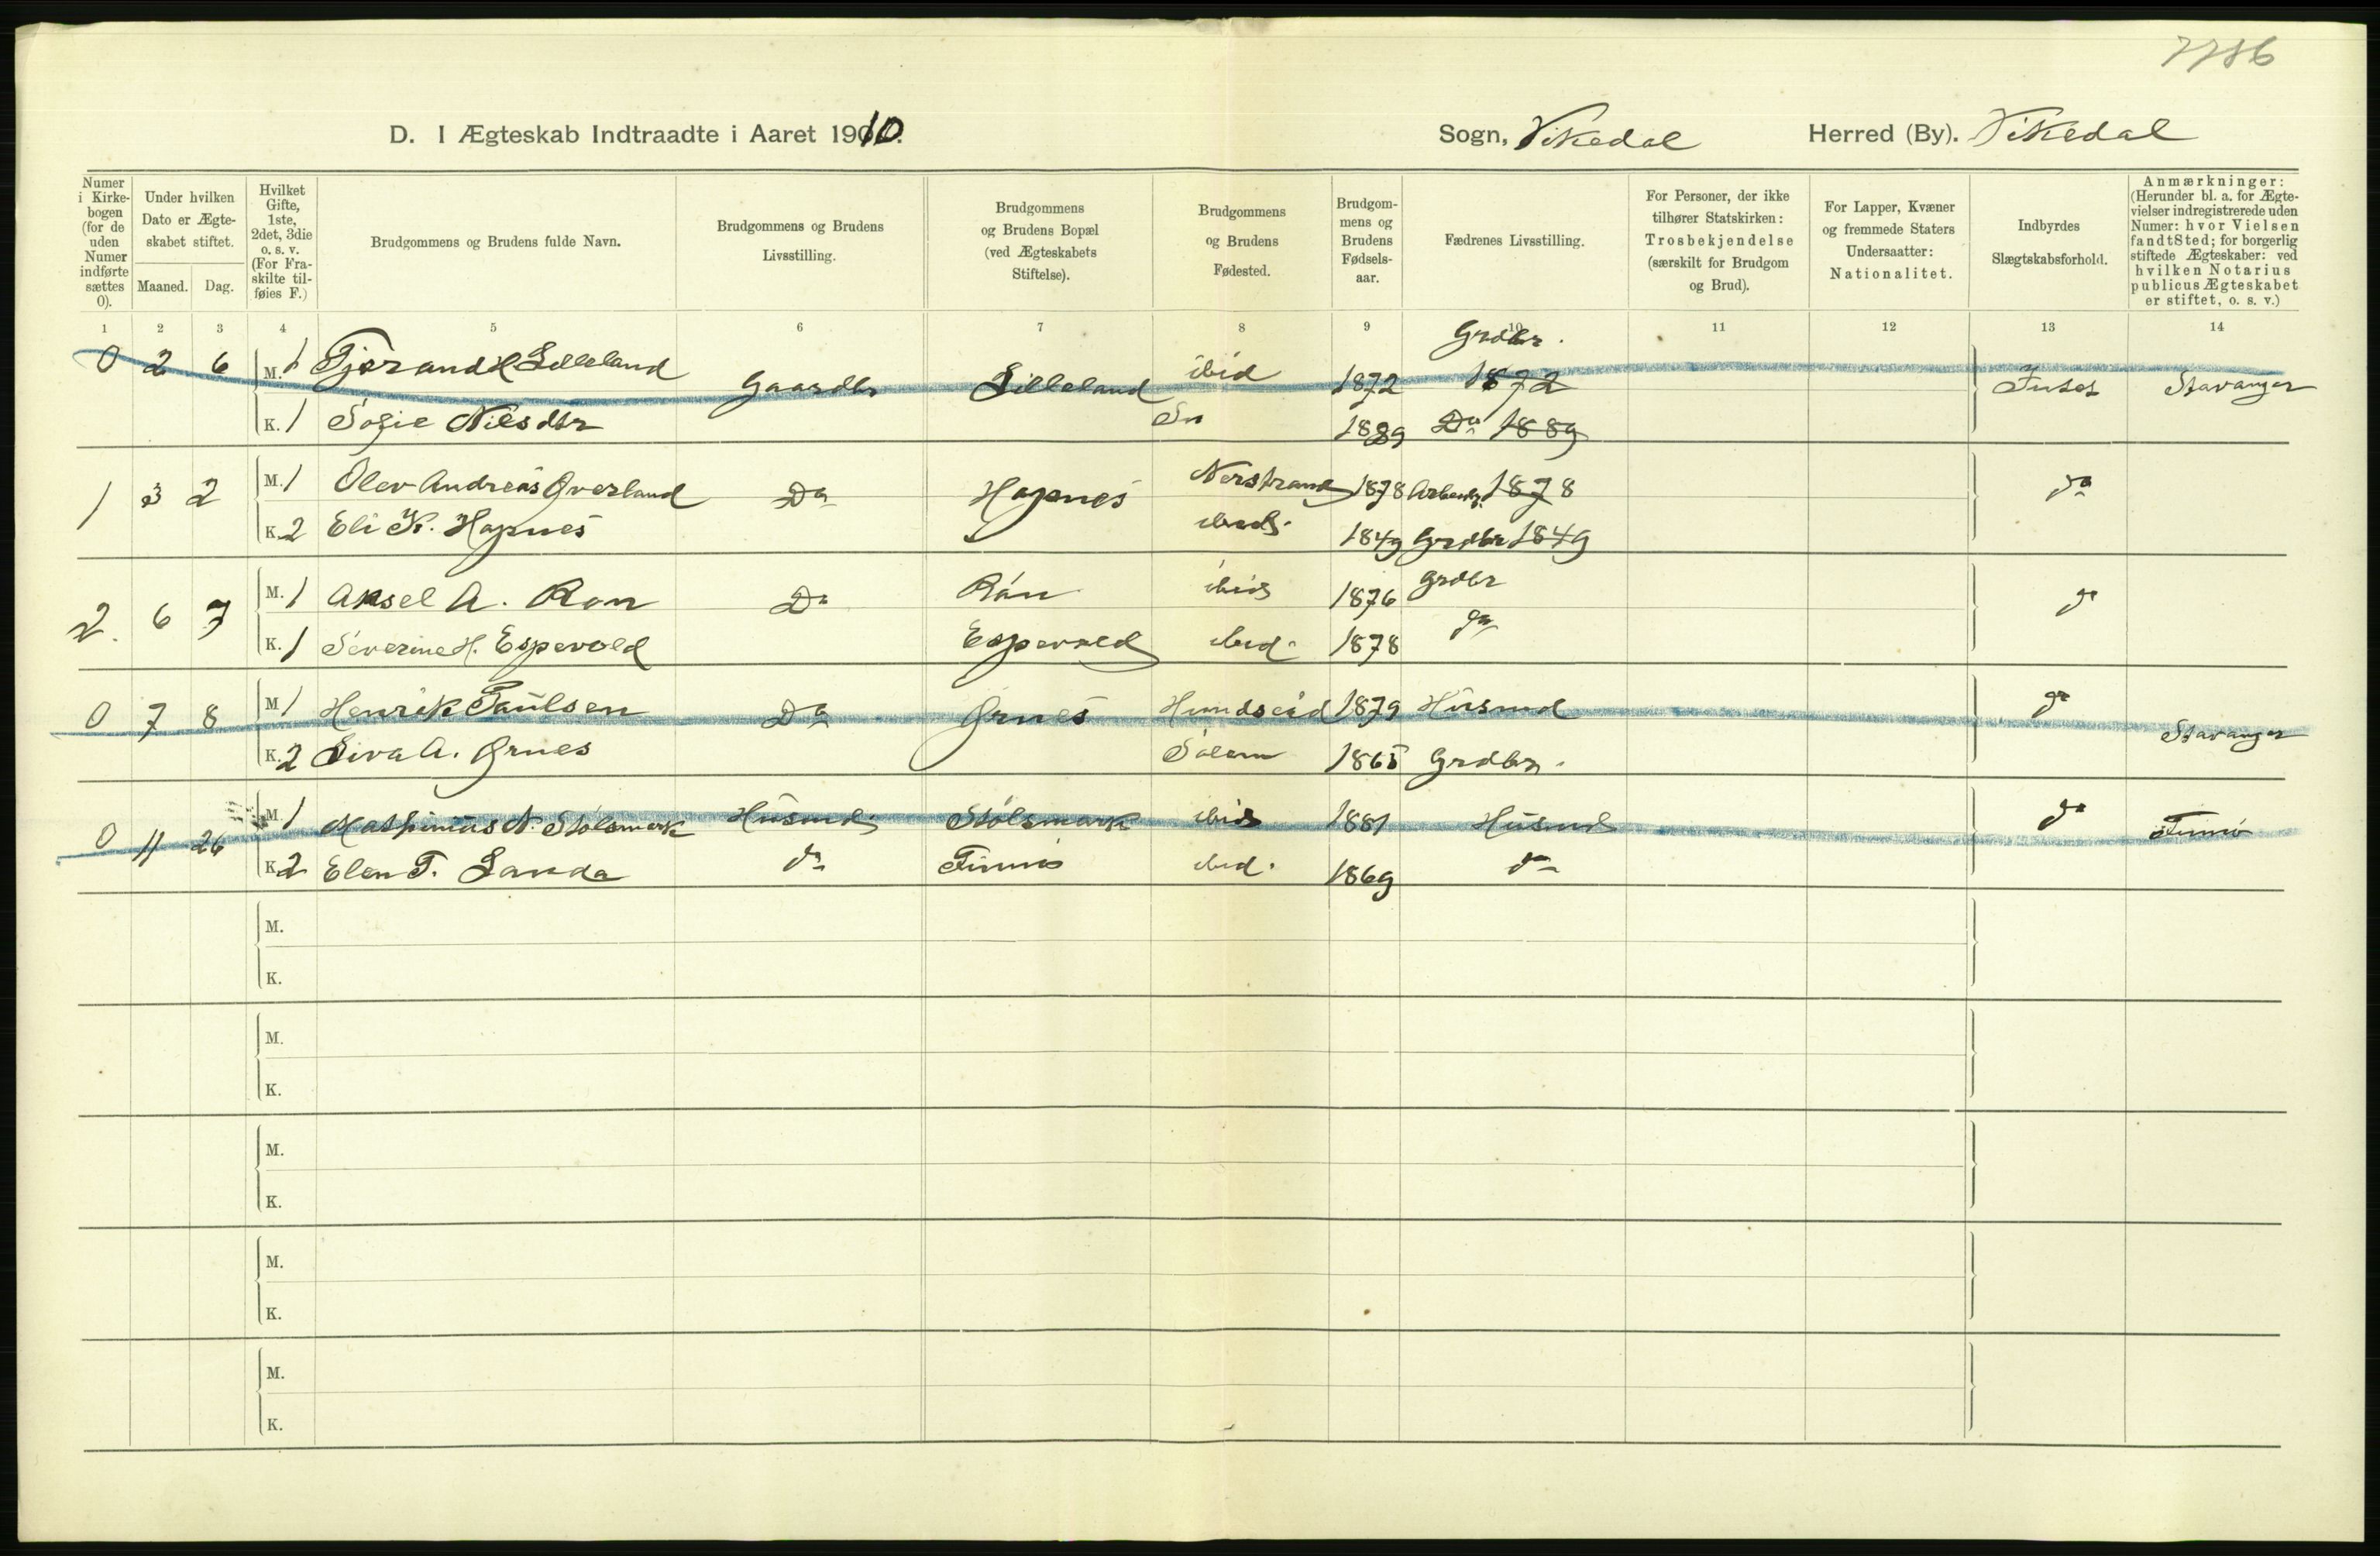 7786
D. I Ægteskab Indtraadte i Aaret 1910.
Sogn, Vikedal Herred (By). Vikedal
Numer i Kirkebogen (for de uden Numer indførte sættes 0).
Under hvilken Dato er Ægteskabet stiftet.
Maaned. Dag.
Hvilket Gifte, 1ste, 2det, 3die o. s. v. (For Fraskilte tilføies F.)
Brudgommens og Brudens fulde Navn.
Brudgommens og Brudens Livsstilling.
Brudgommens og Brudens Bopæl (ved Ægteskabets Stiftelse).
Brudgommens og Brudens Fødested.
Brudgommens og Brudens Fødselsaar.
Fædrenes Livsstilling.
For Personer, der ikke tilhører Statskirken: Trosbekjendelse (særskilt for Brudgom og Brud).
For Lapper, Kvæner og fremmede Staters Undersaatter: Nationalitet.
Indbyrdes Slægtskabsforhold.
Anmærkninger: (Herunder bl. a. for Ægtevielser indregistrerede uden Numer: hvor Vielsen fandt Sted; for borgerlig stiftede Ægteskaber: ved hvilken Notarius publicus Ægteskabet er stiftet, o. s. v.)
1 2 3 4 5 6 7 8 9 10 11 12 13 14
0 2 6 M. 1 Tjerand Lilleland Gaardbr Lilleland ibid 1872 Grdbr. 1872 Intet Stavanger
K. 1 Sofie Nilsdtr 1889 Do 1889
1 3 2 M. 1 Olev Andreas Øverland Do Hapnes Nerstrand 1878 Arbeidr. 1878 do
K. 2 Eli K. Hapnes ibid. 1849 Grdbr 1849
2. 6 7 M. 1 Aksel A. Ron Do ibid 1876 Grdbr do
K. 1 Severine H. Espevold Espevold ibid. 1878 do
0 7 8 M. 1 Henrik Paulsen Do Ørnes Hundseid 1879 Husmd do Stavanger
K. 2 Siva A. Ørnes 1865 Grdbr.
0 11 26 M. 1 Stølsmark Husmd; Stølsmark ibid 1881 Husmd do Finnø
K. 2 Elen T. Landa do Finnø ibid. 1869 do
M.
K.
M.
K.
M.
K.
M.
K.
M.
K.